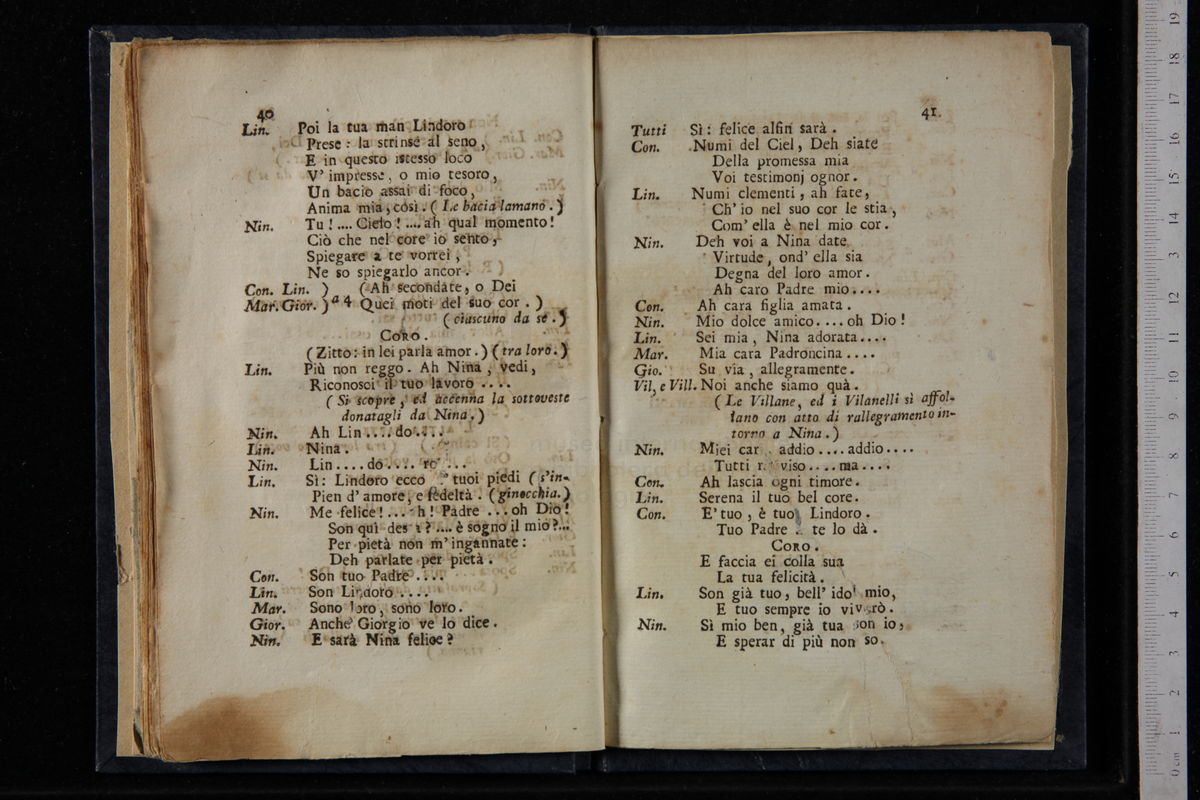 40
Lin. Poi la tua man Lindoro
Prese: la strinse al seno,
E in questo istesso loco
V' impresse, o mio tesoro,
Un bacio assai di foco,
Anima mia, così. (Le bacia lamano.)
Nin. Tu!.... Cielo!.... ah qual momento!
Ciò che nel core io sento,
Spiegare a te vorrei,
Ne so spiegarlo ancor.
Con. Lin. ) (Ah secondate, o Dei
Mar. Gior. ) a 4 Quei moti del suo cor.)
(ciascuno da se.)
CORO.
(Zitto: in lei parla amor.) (tra loro.)
Lin. Più non reggo. Ah Nina, vedi,
Riconosci il tuo lavoro ....
(Si scopre, ed accenna la sottoveste
donatagli da Nina.)
Nin. Ah Lin....do....
Lin. Nina.
Nin. Lin....do....ro....
Lin. Sì: Lindoro ecco tuoi piedi (s'in-
Pien d'amore, e fedeltà. (ginocchia.)
Nin. Me felice!... h! Padre ...oh Dio!
Son quì des ?.... è sogno il mio?...
Per pietà non m'ingannate:
Deh parlate per pietà.
Con. Son tuo Padre ....
Lin. Son Lindoro ....
Mar. Sono loro, sono loro.
Gior. Anche Giorgio ve lo dice.
Nin. E sarà Nina felice?
41
Tutti Sì: felice alfin sarà.
Con. Numi del Ciel, Deh siate
Della promessa mia
Voi testimonj ognor.
Lin. Numi clementi, ah fate,
Ch' io nel suo cor le stia,
Com' ella è nel mio cor.
Nin. Deh voi a Nina date
Virtude, ond' ella sia
Degna del loro amor.
Ah caro Padre mio....
Con. Ah cara figlia amata.
Nin. Mio dolce amico....oh Dio!
Lin. Sei mia, Nina adorata....
Mar. Mia cara Padroncina....
Gio. Su via, allegramente.
Vil, e Vill. Noi anche siamo quà.
(Le Villane, ed i Vilanelli sì affol-
lano con atto di rallegramento in-
torno a Nina.)
Nin. Miei car addio....addio....
Tutti r viso....ma....
Con. Ah lascia ogni timore.
Lin. Serena il tuo bel core.
Con. E' tuo, è tuo Lindoro.
Tuo Padre te lo dà.
CORO.
E faccia ei colla sua
La tua felicità.
Lin. Son già tuo, bell' idol mio,
E tuo sempre io viverò.
Nin. Sì mio ben, già tua son io,
E sperar di più non so.
0 cm 1 2 3 4 5 6 7 8 9 10 11 12 13 14 15 16 17 18 19